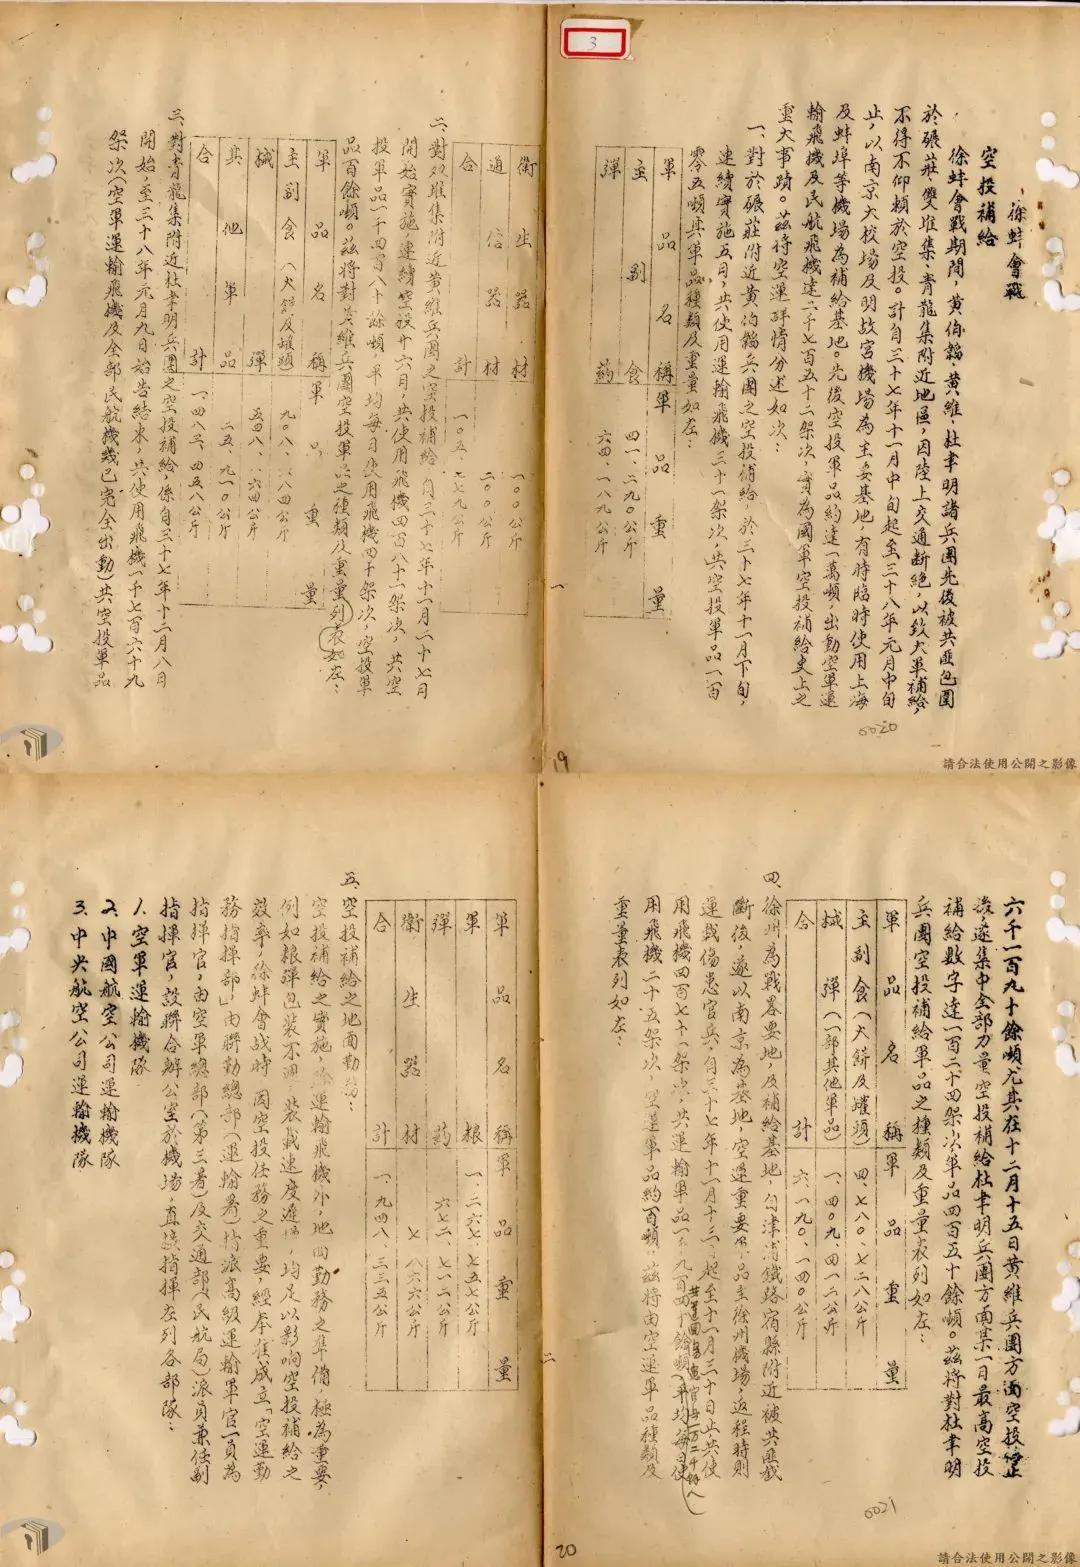 3
徐蚌會戰
空投補給
徐蚌會戰期間，黃伯韜、黃維、杜聿明諸兵團先後被共匪包圍
於碾莊、雙堆集、青龍集附近地區，因陸上交通斷絕，以致大軍補給，
不得不仰賴於空投。計自三十七年十一月中旬起至三十八年元月中旬
止，以南京大校場及明故宮機場為主要基地，有時臨時使用上海
及蚌埠等機場為補給基地。先後空投軍品約達一萬噸，出動空軍運
輸飛機及民航飛機達二千七百五十二架次，實為國軍空投補給史上之
重大事蹟。茲將空運詳情分述如次：
一、對於碾莊附近黃伯韜兵團之空投補給，於三十七年十一月下旬，
連續實施五日，共使用運輸飛機三十一架次，共空投軍品一百
零五噸其軍品種類及重量如左：
軍品名稱 軍品重量
主副食 四一、二九〇公斤
彈藥 六四、一八九公斤
衛生器材 一〇〇公斤
通信器材 二〇〇公斤
合計 一〇五、七七九公斤
二、對双堆集附近黃維兵團之空投補給，自三十七年十一月二十七日
開始實施連續空投廿六月，共使用飛機四百八十二架次，共空
投軍品一千四百八十餘噸，平均每日使用飛機四十架次，空投軍
品百餘噸。茲將對黃維兵團空投軍品之種類及重量列表如左：
軍品名稱 軍品重量
主副食（大餅及罐頭） 九〇八、八八四公斤
械彈 五四八、六六四公斤
其他軍品 二五、九一〇公斤
合計 一、四八三、四五八公斤
三、對青龍集附近杜聿明兵團之空投補給，係自三十七年十二月八日
開始，至三十八年元月九日始告結束，共使用飛機一千七百六十九
架次（空軍運輸飛機及全部民航機幾已完全出動）共空投軍品
一
0020
19
請合法使用公開之影像
六千一百九十餘噸，尤其在十二月十五日黃維兵團方面空投停止
後，遂集中全部力量空投補給杜聿明兵團方面某一日最高空投
補給數字達一百二十四架次軍品四百五十餘噸。茲將對杜聿明
兵團空投補給軍品之種類及重量表列如左：
軍品名稱 軍品重量
主副食（大餅及罐頭） 四、七八〇、七二八公斤
械彈（一部其他軍品） 一、四〇九、四一二公斤
合計 六、一九〇、一四〇公斤
四、徐州為戰畧要地，及補給基地，自津浦鐵路宿縣附近被共匪截
斷後，遂以南京為基地，空運重要軍品至徐州機場，返程時則
運載傷患官兵，自三十七年十一月十二日起至十一月三十日止共使
用飛機四百七十一架次，共運輸軍品一千九百四十餘噸（平均每日使
共運回傷患官兵一萬二千餘人
用飛機二十五架次，空運軍品約百噸，茲將由空運軍品種類及
重量表列如左：
軍品名稱 軍品重量
軍糧 一、二六七、七五七公斤
彈藥 六七二、七一二公斤
衛生器材 七、八六六公斤
合計 一、九四八、三三五公斤
五、空投補給之地面勤務：
空投補給之實施，除運輸飛機外，地面勤務之準備，極為重要，
例如粮彈包裝不週，裝載速度遲滯，均足以影响空投補給之
效率，徐蚌會战時，因空投任務之重要，經奉准成立「空運勤
務指揮部」，由聯勤總部（運輸署）特派高級運輸軍官一員為
指揮官，由空軍總部（第三署）及交通部（民航局）派員兼任副
指揮官，設聯合辦公室於機場，直接指揮左列各部隊：
1、空軍運輸機隊
2、中國航空公司運輸機隊
3、中央航空公司運輸機隊
二
0021
20
請合法使用公開之影像